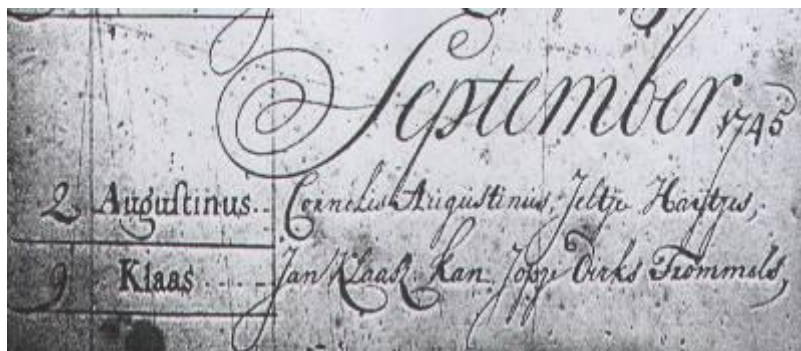 September 1745
2 Augustinus.. Cornelis Augustinus, Jeltje Haijtjes,
9 Klaas .... Jan Klaasz. Kan. Jopje Dirks Trommels,